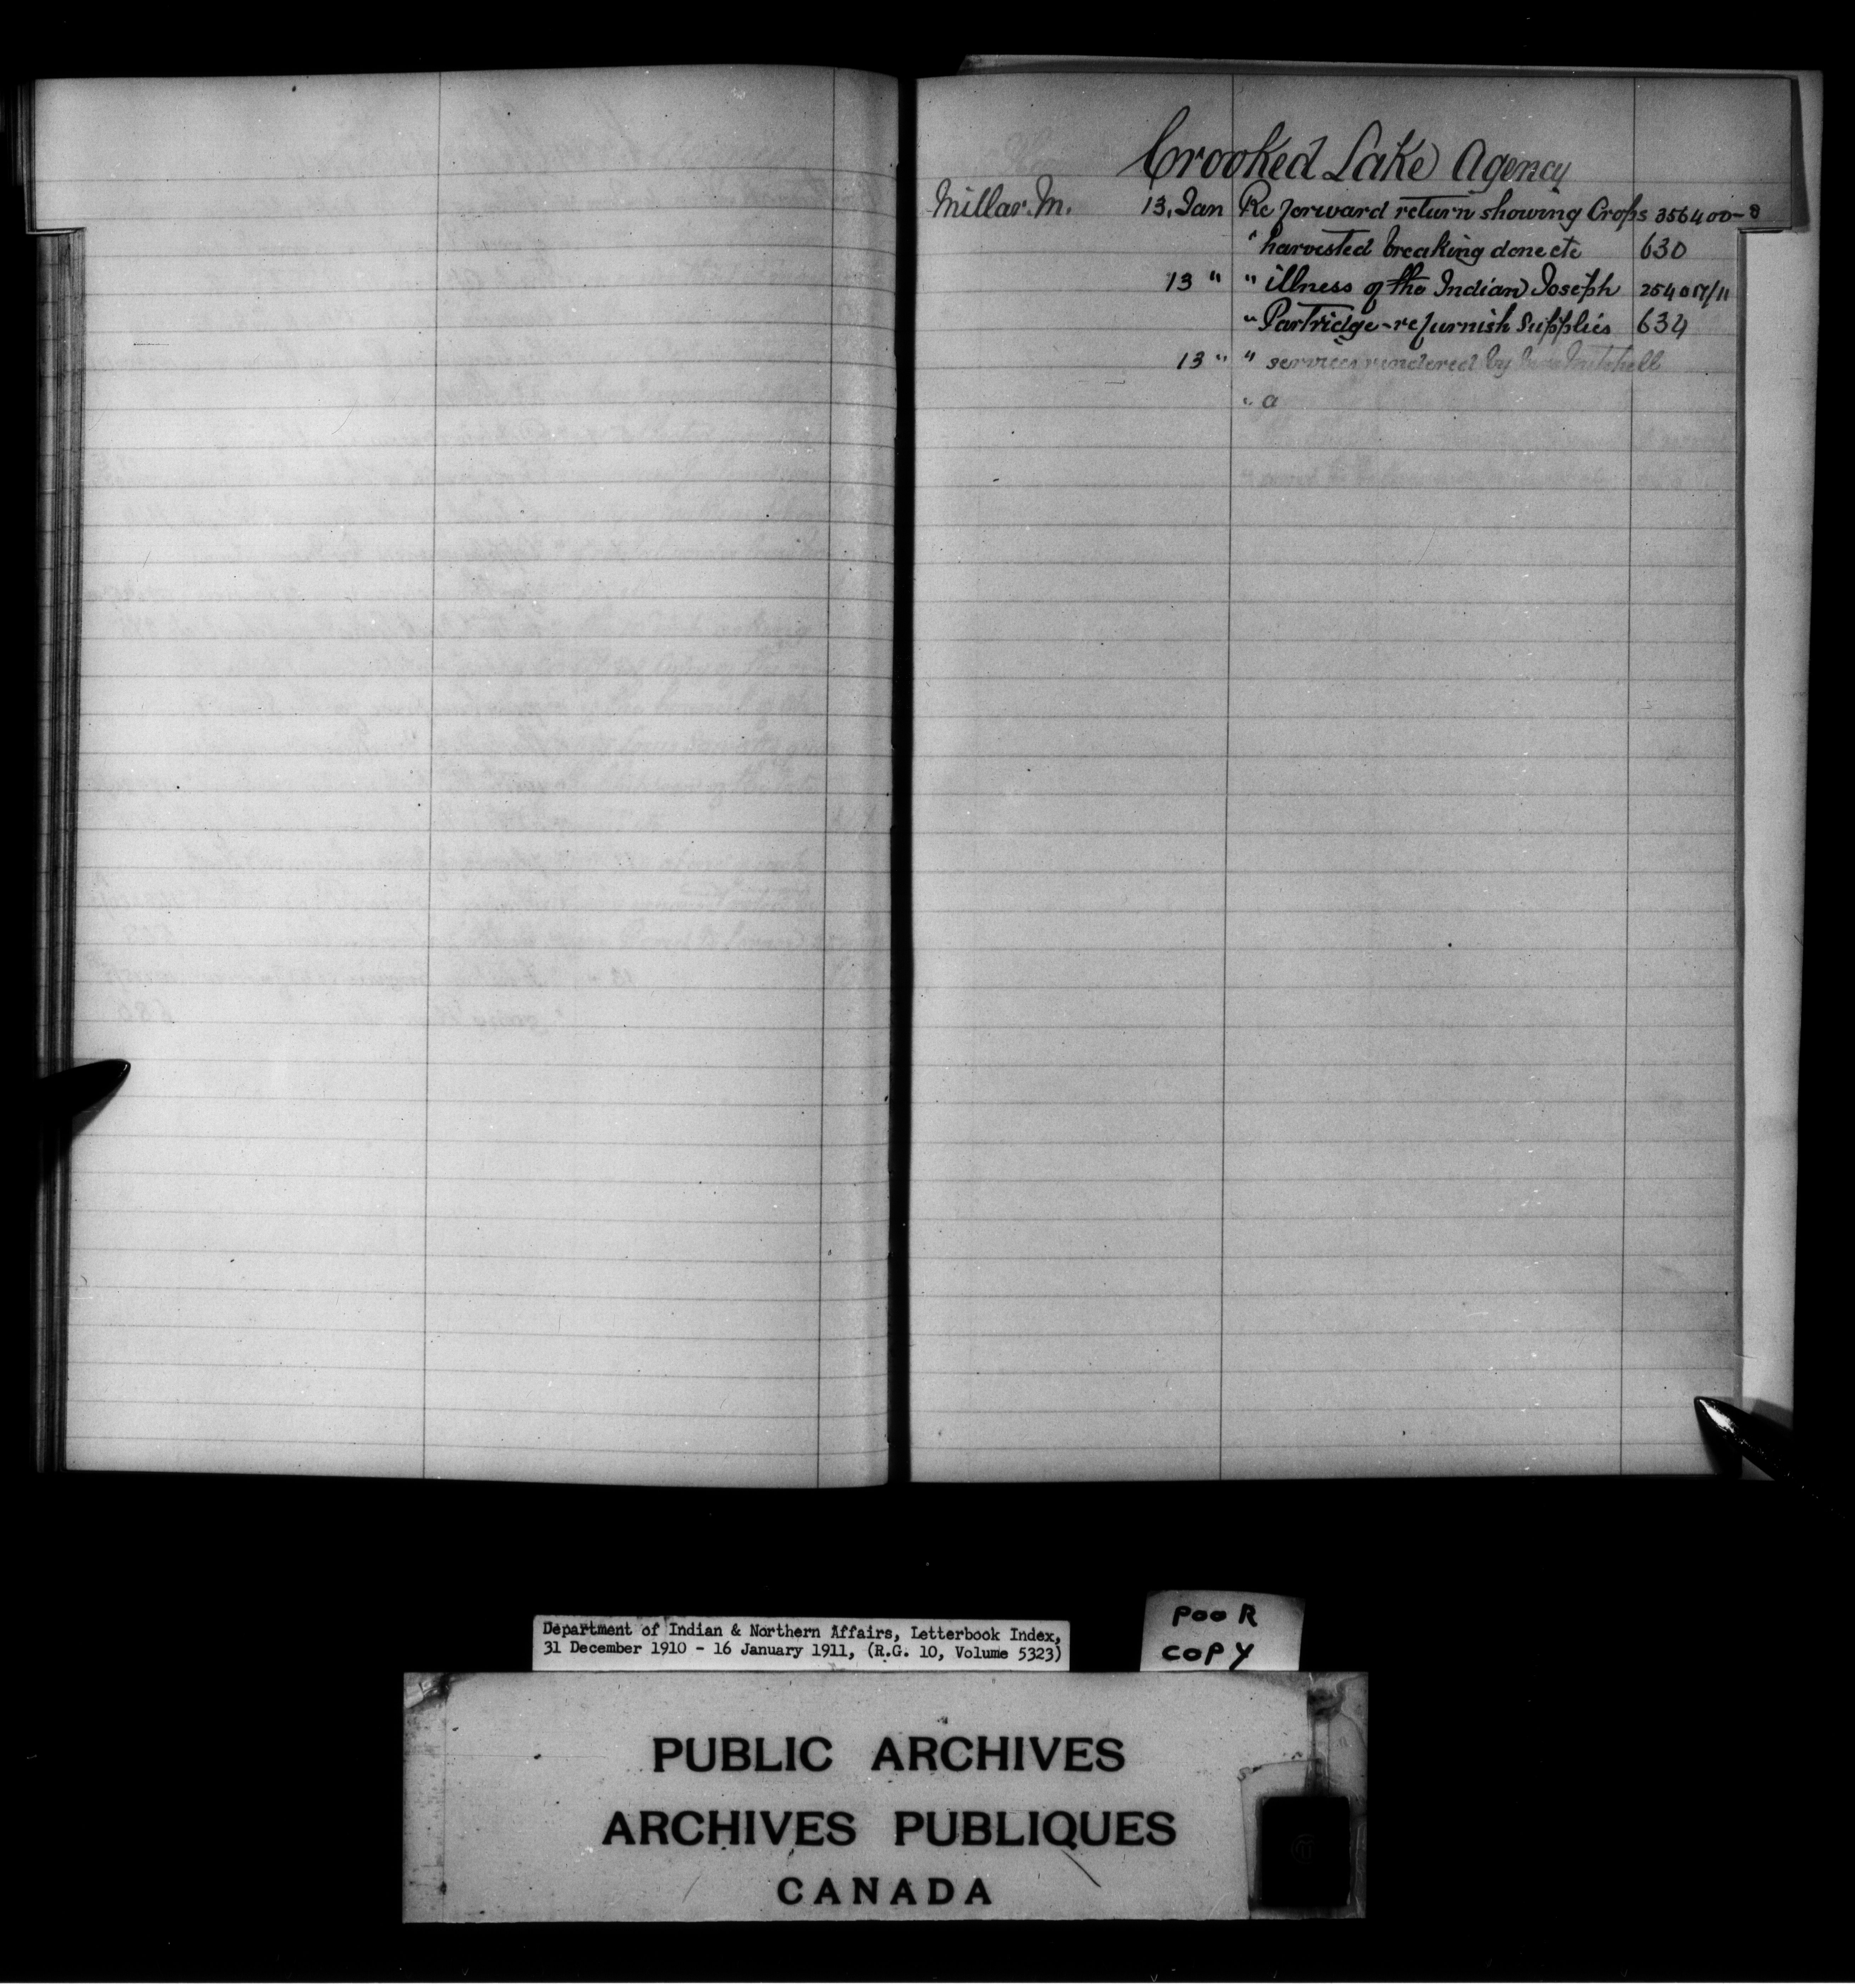 Crooked Lake Agency
Millar. M. 13, Jan Re forward return showing Crops 356400-8
" harvested breaking done etc 630
13 " " illness of the Indian Joseph 254017/11
" Partridge - re furnish Supplies 634
13 " " services rendered by Mitchell
" a
Department of Indian & Northern Affairs, Letterbook Index,
31 December 1910 - 16 January 1911, (R.G. 10, Volume 5323)
POOR
COPY
PUBLIC ARCHIVES
ARCHIVES PUBLIQUES
CANADA